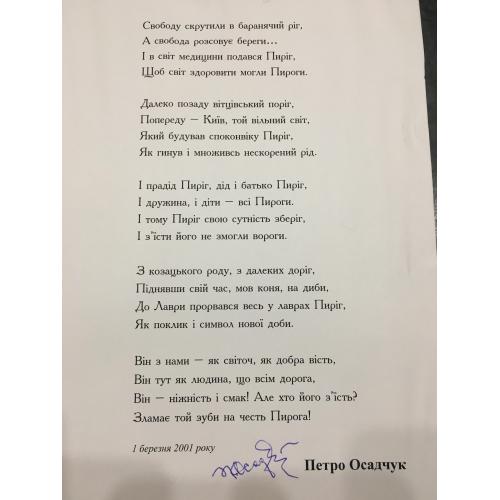 Свободу скрутили в баранячий ріг,
А свобода розсовує береги...
І в світ медицини подався Пиріг,
Щоб світ здоровити могли Пироги.
Далеко позаду вітцівський поріг,
Попереду — Київ, той вільний світ,
Який будував споконвіку Пиріг,
Як гинув і множивсь нескорений рід.
І прадід Пиріг, дід і батько Пиріг,
І дружина, і діти — всі Пироги.
І тому Пиріг свою сутність зберіг,
І з'їсти його не змогли вороги.
З козацького роду, з далеких доріг,
Піднявши свій час, мов коня, на диби,
До Лаври прорвався весь у лаврах Пиріг,
Як поклик і символ нової доби.
Він з нами — як світоч, як добра вість,
Він тут як людина, що всім дорога,
Він — ніжність і смак! Але хто його з'їсть?
Зламає той зуби на честь Пирога!
1 березня 2001 року
Петро Осадчук